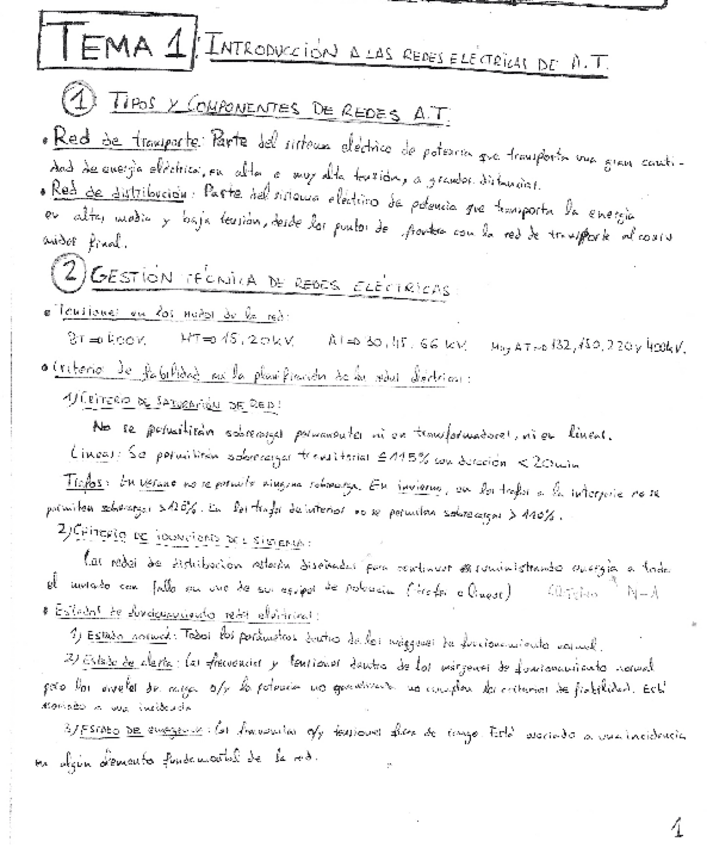 TEMA 1: INTRODUCCIÓN A LAS REDES ELÉCTRICAS DE A.T.
① TIPOS Y COMPONENTES DE REDES A.T.
• Red de transporte: Parte del sistema eléctrico de potencia que transporta una gran canti-
dad de energía eléctrica, en alta o muy alta tensión, a grandes distancias.
• Red de distribución: Parte del sistema eléctrico de potencia que transporta la energía
en alta, media y baja tensión, desde los puntos de frontera con la red de transporte al consu
midor final.
② GESTIÓN TÉCNICA DE REDES ELÉCTRICAS
• Tensiones en los nudos de la red:
BT⇒400V. MT⇒15, 20kV. AT⇒30, 45, 66 kV. Muy AT⇒132, 150, 220 y 400kV.
• Criterio de fiabilidad en la planificación de las redes eléctricas:
1) CRITERIO DE SATURACIÓN DE RED:
No se permitirán sobrecargas permanentes ni en transformadores, ni en líneas.
Líneas: Se permitirán sobrecargas transitorias ≤115% con duración < 20min
Trafos: En verano no se permite ninguna sobrecarga. En invierno, en los trafos a la intemperie no se
permiten sobrecargas >120%. En los trafos de interior no se permiten sobrecargas > 110%.
2) CRITERIO DE DEL SISTEMA:
Las redes de distribución estarán diseñadas para continuar suministrando energía a todo
el mercado con fallo en uno de sus equipos de potencia (trafo o líneas) N-1
• Estados de funcionamiento redes eléctricas:
1) Estado normal: Todos los parámetros dentro de los márgenes de funcionamiento normal.
2) Estado de alerta: Las frecuencias y tensiones dentro de los márgenes de funcionamiento normal
pero los niveles de carga o/y la potencia no no cumplen los criterios de fiabilidad. Está
asociado a una incidencia
3) ESTADO DE emergencia: Las frecuencias o/y tensiones fuera de rango. Está asociado a una incidencia
en algún elemento fundamental de la red.
1